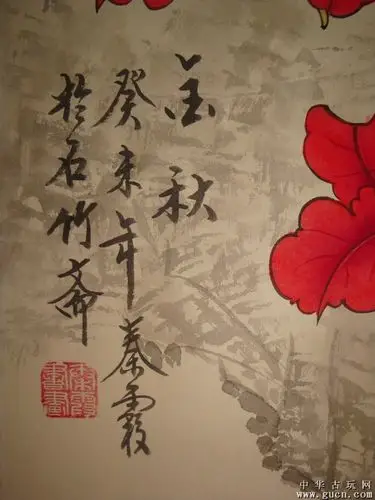 金秋
癸未年秦霞
於石竹斋
秦霞
書畫
中华古玩网
www.gucn.com